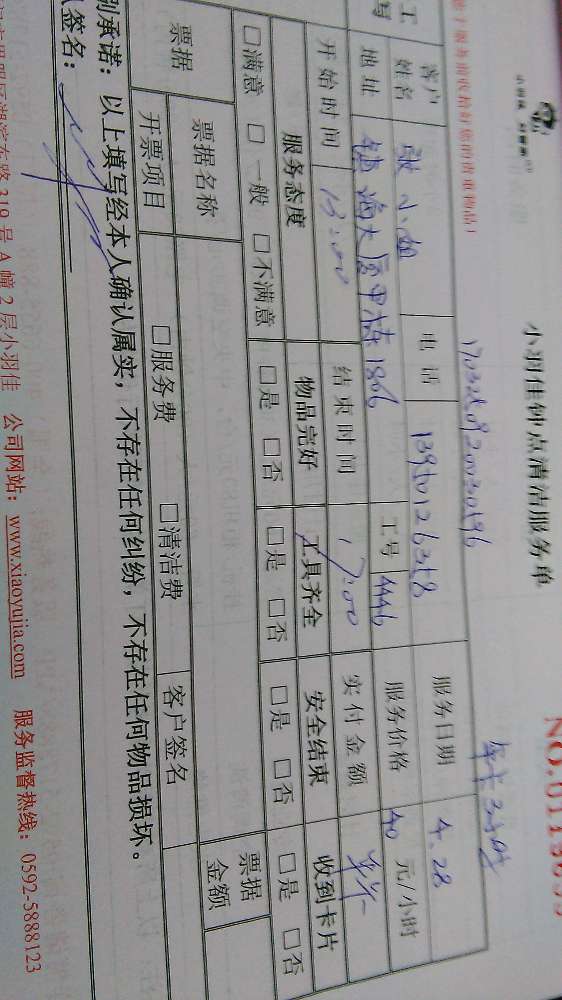 小羽佳钟点清洁服务单
客户姓名 小姐 电话 13950126358 服务日期 4.28
地址 大厦 1806 工号 4446 服务价格 40 元/小时
开始时间 13:00 结束时间 17:00 实付金额
服务态度 物品完好 工具齐全 安全结束 收到卡片
□满意 □一般 □不满意 □是 □否 □是 □否 □是 □否 □是 □否
票据 票据名称 票据金额
开票项目 □服务费 □清洁费 客户签名
承诺：以上填写经本人确认属实，不存在任何纠纷，不存在任何物品损坏。
签名：
路 319 号 A 幢 2 层小羽佳 公司网站：www.xiaoyujia.com 服务监督热线：0592-5888123